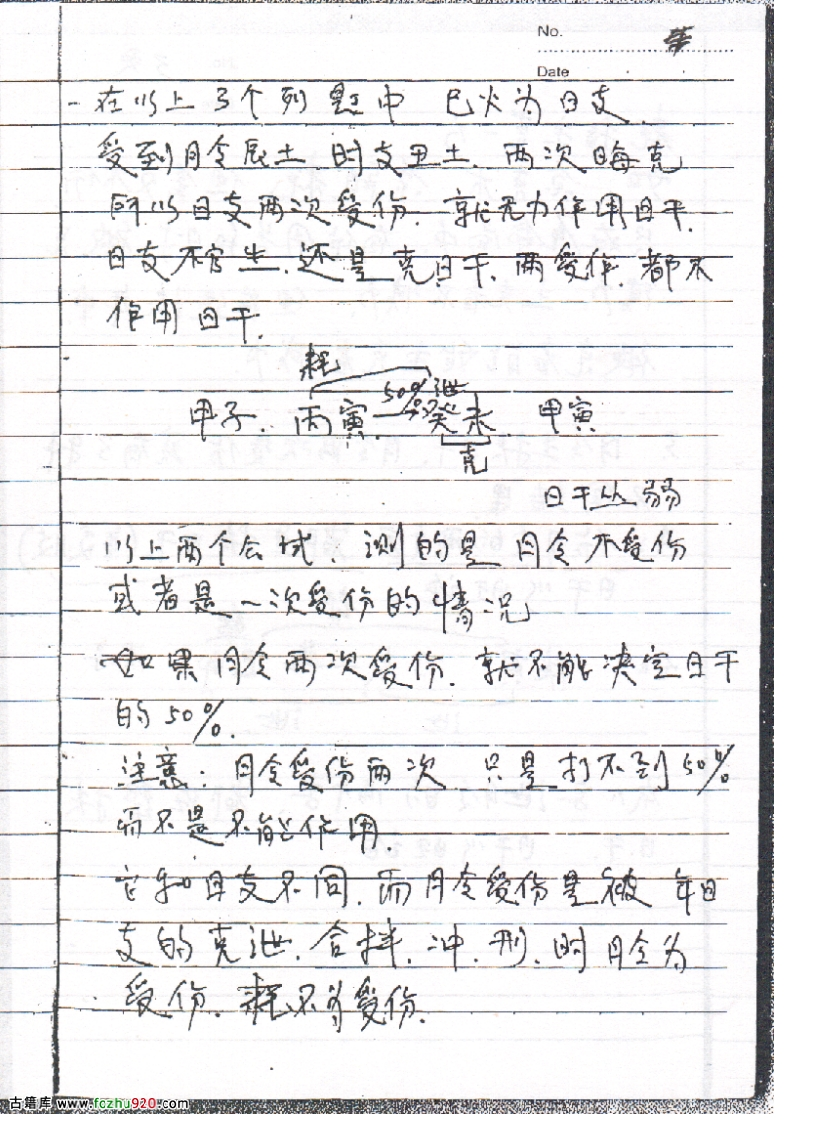 No.
Date
在以上3个列题中 巳火为日支
受到月令辰土 时支丑土、两次晦克
所以日支两次受伤、就无力作用日干、
日支不管生、还是克日干、两受伤、都不
作用日干、
耗
50% 泄
甲子、丙寅 癸未 甲寅
克
日干从弱
以上两个公式、测的是月令不受伤
或者是一次受伤的情况
如果月令两次受伤、就不能决定日干
的50%、
注意：月令受伤两次 只是打不到50%
而不是不能作用、
它和日支不同、而月令受伤是被年日
支的克泄、合拌、冲、刑、时月令为
受伤、耗不为受伤、
古籍库 www.fczhu920.com